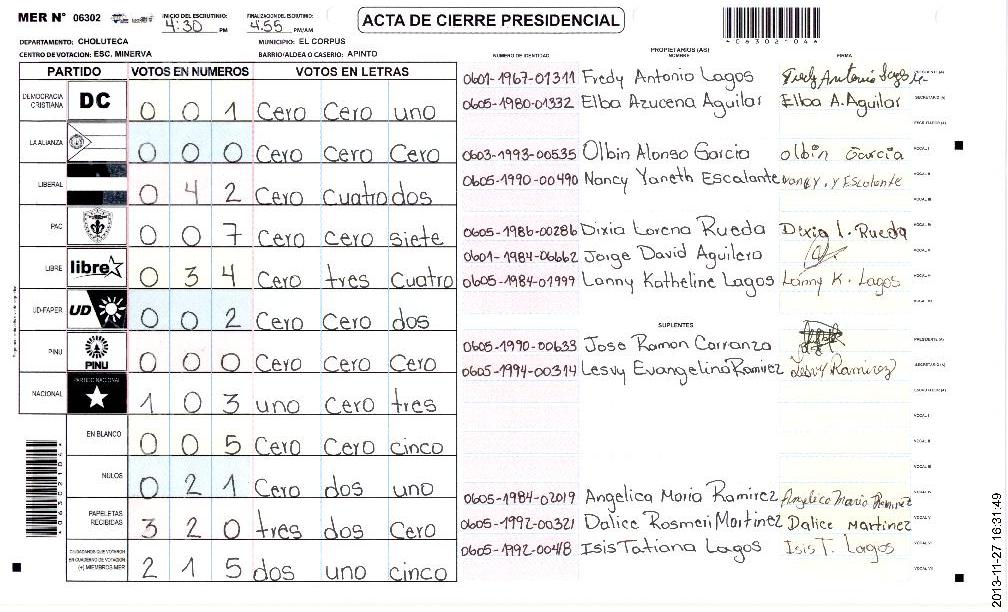 MER Nº 06302 INICIO DEL ESCRUTINIO: 4:30 PM FINALIZACION DEL ESCRUTINIO: 4:55 PM/AM
ACTA DE CIERRE PRESIDENCIAL
DEPARTAMENTO: CHOLUTECA MUNICIPIO: EL CORPUS
CENTRO DE VOTACION: ESC. MINERVA BARRIO/ALDEA O CASERIO: APINTO
PARTIDO VOTOS EN NUMEROS VOTOS EN LETRAS
DEMOCRACIA CRISTIANA DC 0 0 1 Cero Cero uno
LA ALIANZA 0 0 0 Cero Cero Cero
LIBERAL 0 4 2 Cero Cuatro dos
PAC 0 0 7 Cero cero siete
LIBRE libre 0 3 4 Cero tres Cuatro
UD-FAPER UD 0 0 2 Cero Cero dos
PINU PINU 0 0 0 Cero Cero Cero
NACIONAL PARTIDO NACIONAL 1 0 3 uno Cero tres
EN BLANCO 0 0 5 Cero Cero cinco
NULOS 0 2 1 Cero dos uno
PAPELETAS RECIBIDAS 3 2 0 tres dos Cero
CIUDADANOS QUE VOTARON EN CUADERNO DE VOTACION (+) MIEMBROS MER 2 1 5 dos uno cinco
*06302104*
PROPIETARIOS (AS)
NUMERO DE IDENTIDAD NOMBRE FIRMA
0601-1967-01311 Fredy Antonio Lagos Fredy Antonio PRESIDENTE (A)
0605-1980-01332 Elba Azucena Aguilar Elba A. Aguilar SECRETARIO (A)
ESCRUTADOR (A)
0603-1993-00535 Olbin Alonso Garcia Olbin Garcia VOCAL I
0605-1990-00490 Nancy Yaneth Escalante nancy, y Escalante VOCAL II
VOCAL III
0605-1986-00286 Dixia Lorena Rueda Dixia l. Rueda VOCAL IV
0601-1984-06662 Jorge David Aguilera VOCAL V
0605-1984-01999 Lanny Katheline Lagos Lanny K. Lagos VOCAL VI
VOCAL VII
SUPLENTES
0605-1990-00633 Jose Ramon Carranza PRESIDENTE (A)
0605-1994-00314 Lesvy Evangelina Ramirez Lesvy Ramirez SECRETARIO (A)
ESCRUTADOR (A)
VOCAL I
VOCAL II
VOCAL III
0605-1984-02019 Angelica Maria Ramirez Angelica Maria Ramirez VOCAL IV
0605-1992-00321 Dalice Rosmeri Martinez Dalice Martinez VOCAL V
0605-1992-0048 Isis Tatiana Lagos Isis T. Lagos VOCAL VI
VOCAL VII
2013-11-27 16:31:49